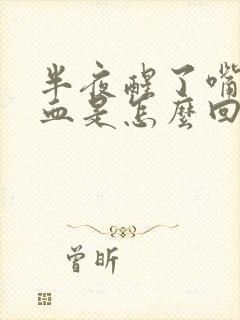 半夜醒了嘴
血是怎麼回
曾昕